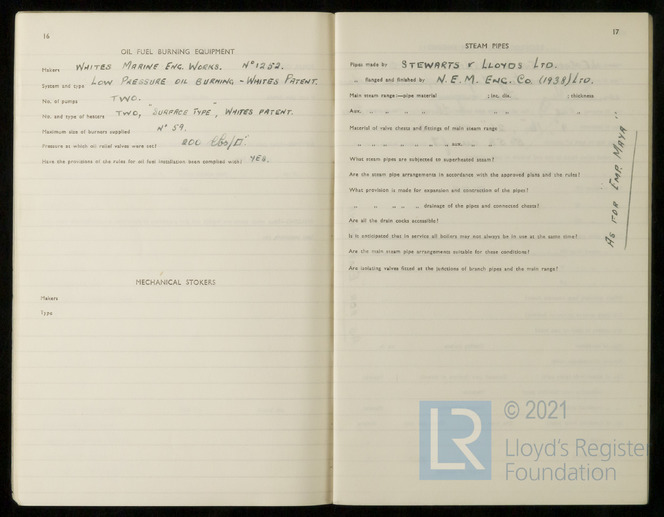 16
OIL FUEL BURNING EQUIPMENT
Makers WHITES MARINE ENG. WORKS. Nº 1252.
System and type LOW PRESSURE OIL BURNING - WHITES PATENT.
No. of pumps TWO.
No. and type of heaters TWO, "SURFACE TYPE", WHITES PATENT.
Maximum size of burners supplied Nº 59.
Pressure at which oil relief valves were set? 200 lbs/□"
Have the provisions of the rules for oil fuel installation been complied with? YES.
MECHANICAL STOKERS
Makers
Type
17
STEAM PIPES
Pipes made by STEWARTS & LLOYDS LTD.
„ flanged and finished by N.E.M. ENG. Co. (1938) LTD.
Main steam range:—pipe material ; int. dia. ; thickness
Aux. „ „ „ „ „ „
Material of valve chests and fittings of main steam range
„ „ „ „ „ „ aux. „ „
What steam pipes are subjected to superheated steam?
Are the steam pipe arrangements in accordance with the approved plans and the rules?
What provision is made for expansion and contraction of the pipes?
„ „ „ „ „ drainage of the pipes and connected chests?
Are all the drain cocks accessible?
Is it anticipated that in service all boilers may not always be in use at the same time?
Are the main steam pipe arrangements suitable for these conditions?
Are isolating valves fitted at the junctions of branch pipes and the main range?
AS FOR "EMP. MAYA"
LR
© 2021
Lloyd's Register
Foundation